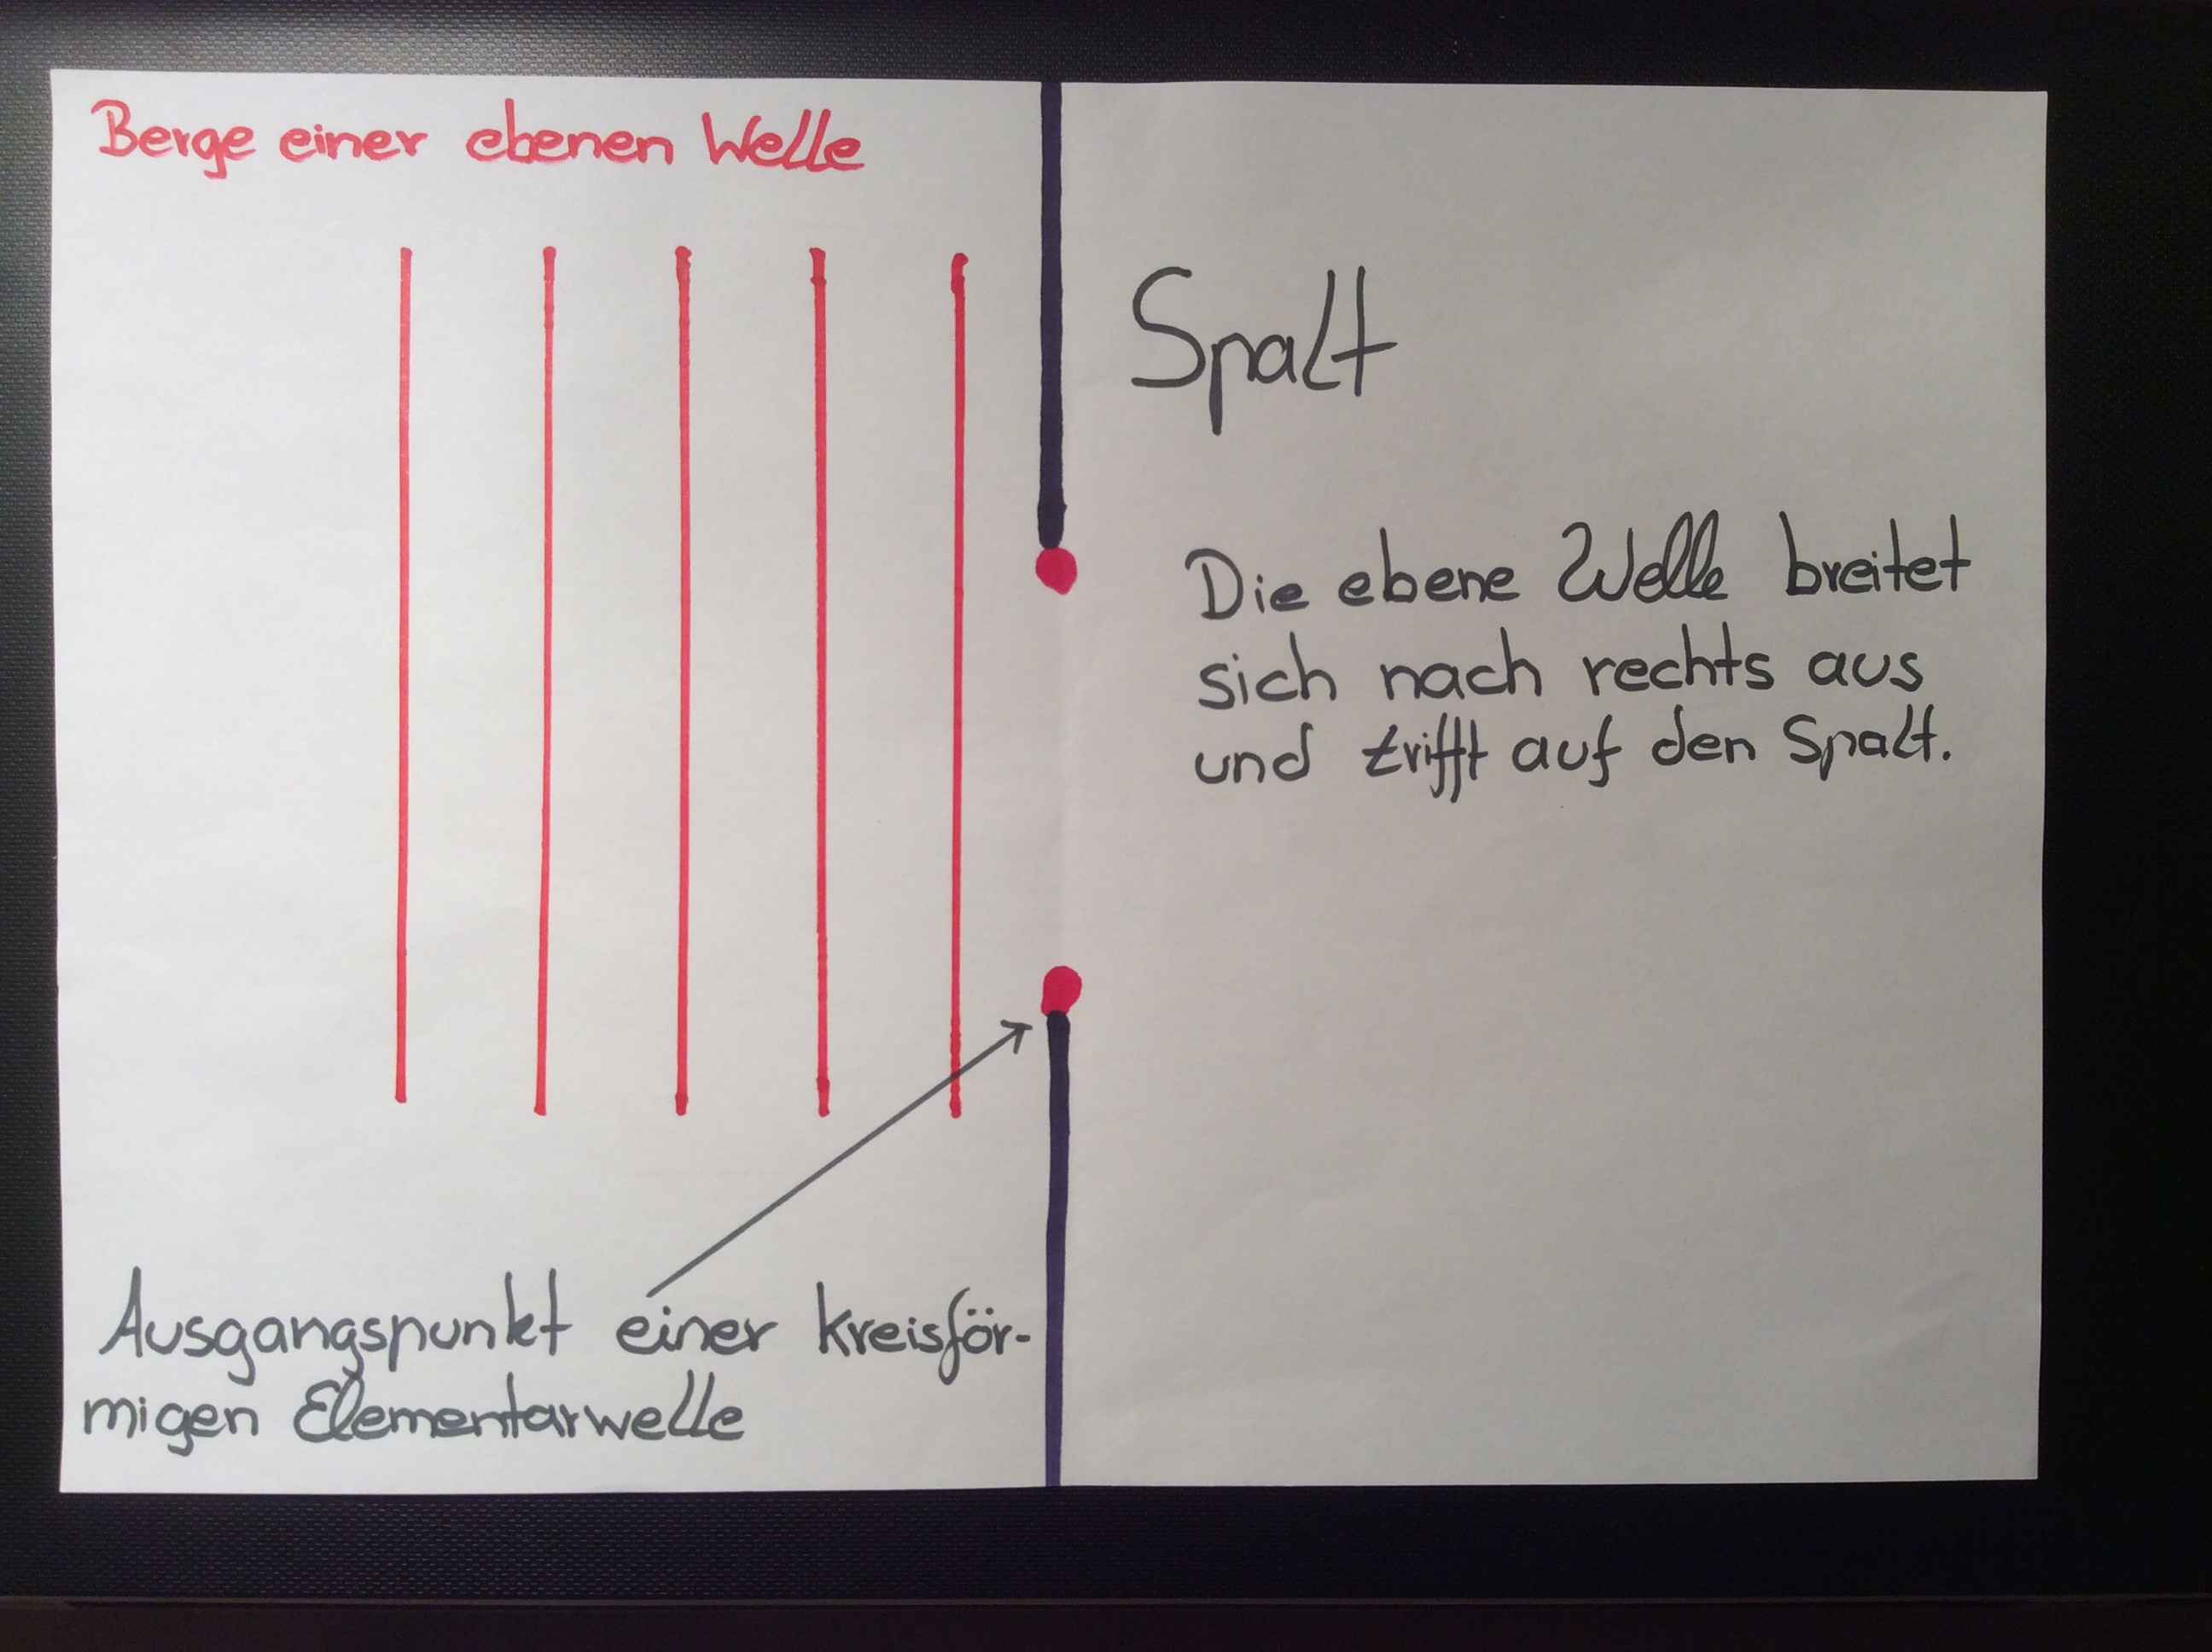 Berge einer ebenen Welle
Spalt
Die ebene Welle breitet
sich nach rechts aus
und trifft auf den Spalt.
Ausgangspunkt einer kreisför-
migen Elementarwelle